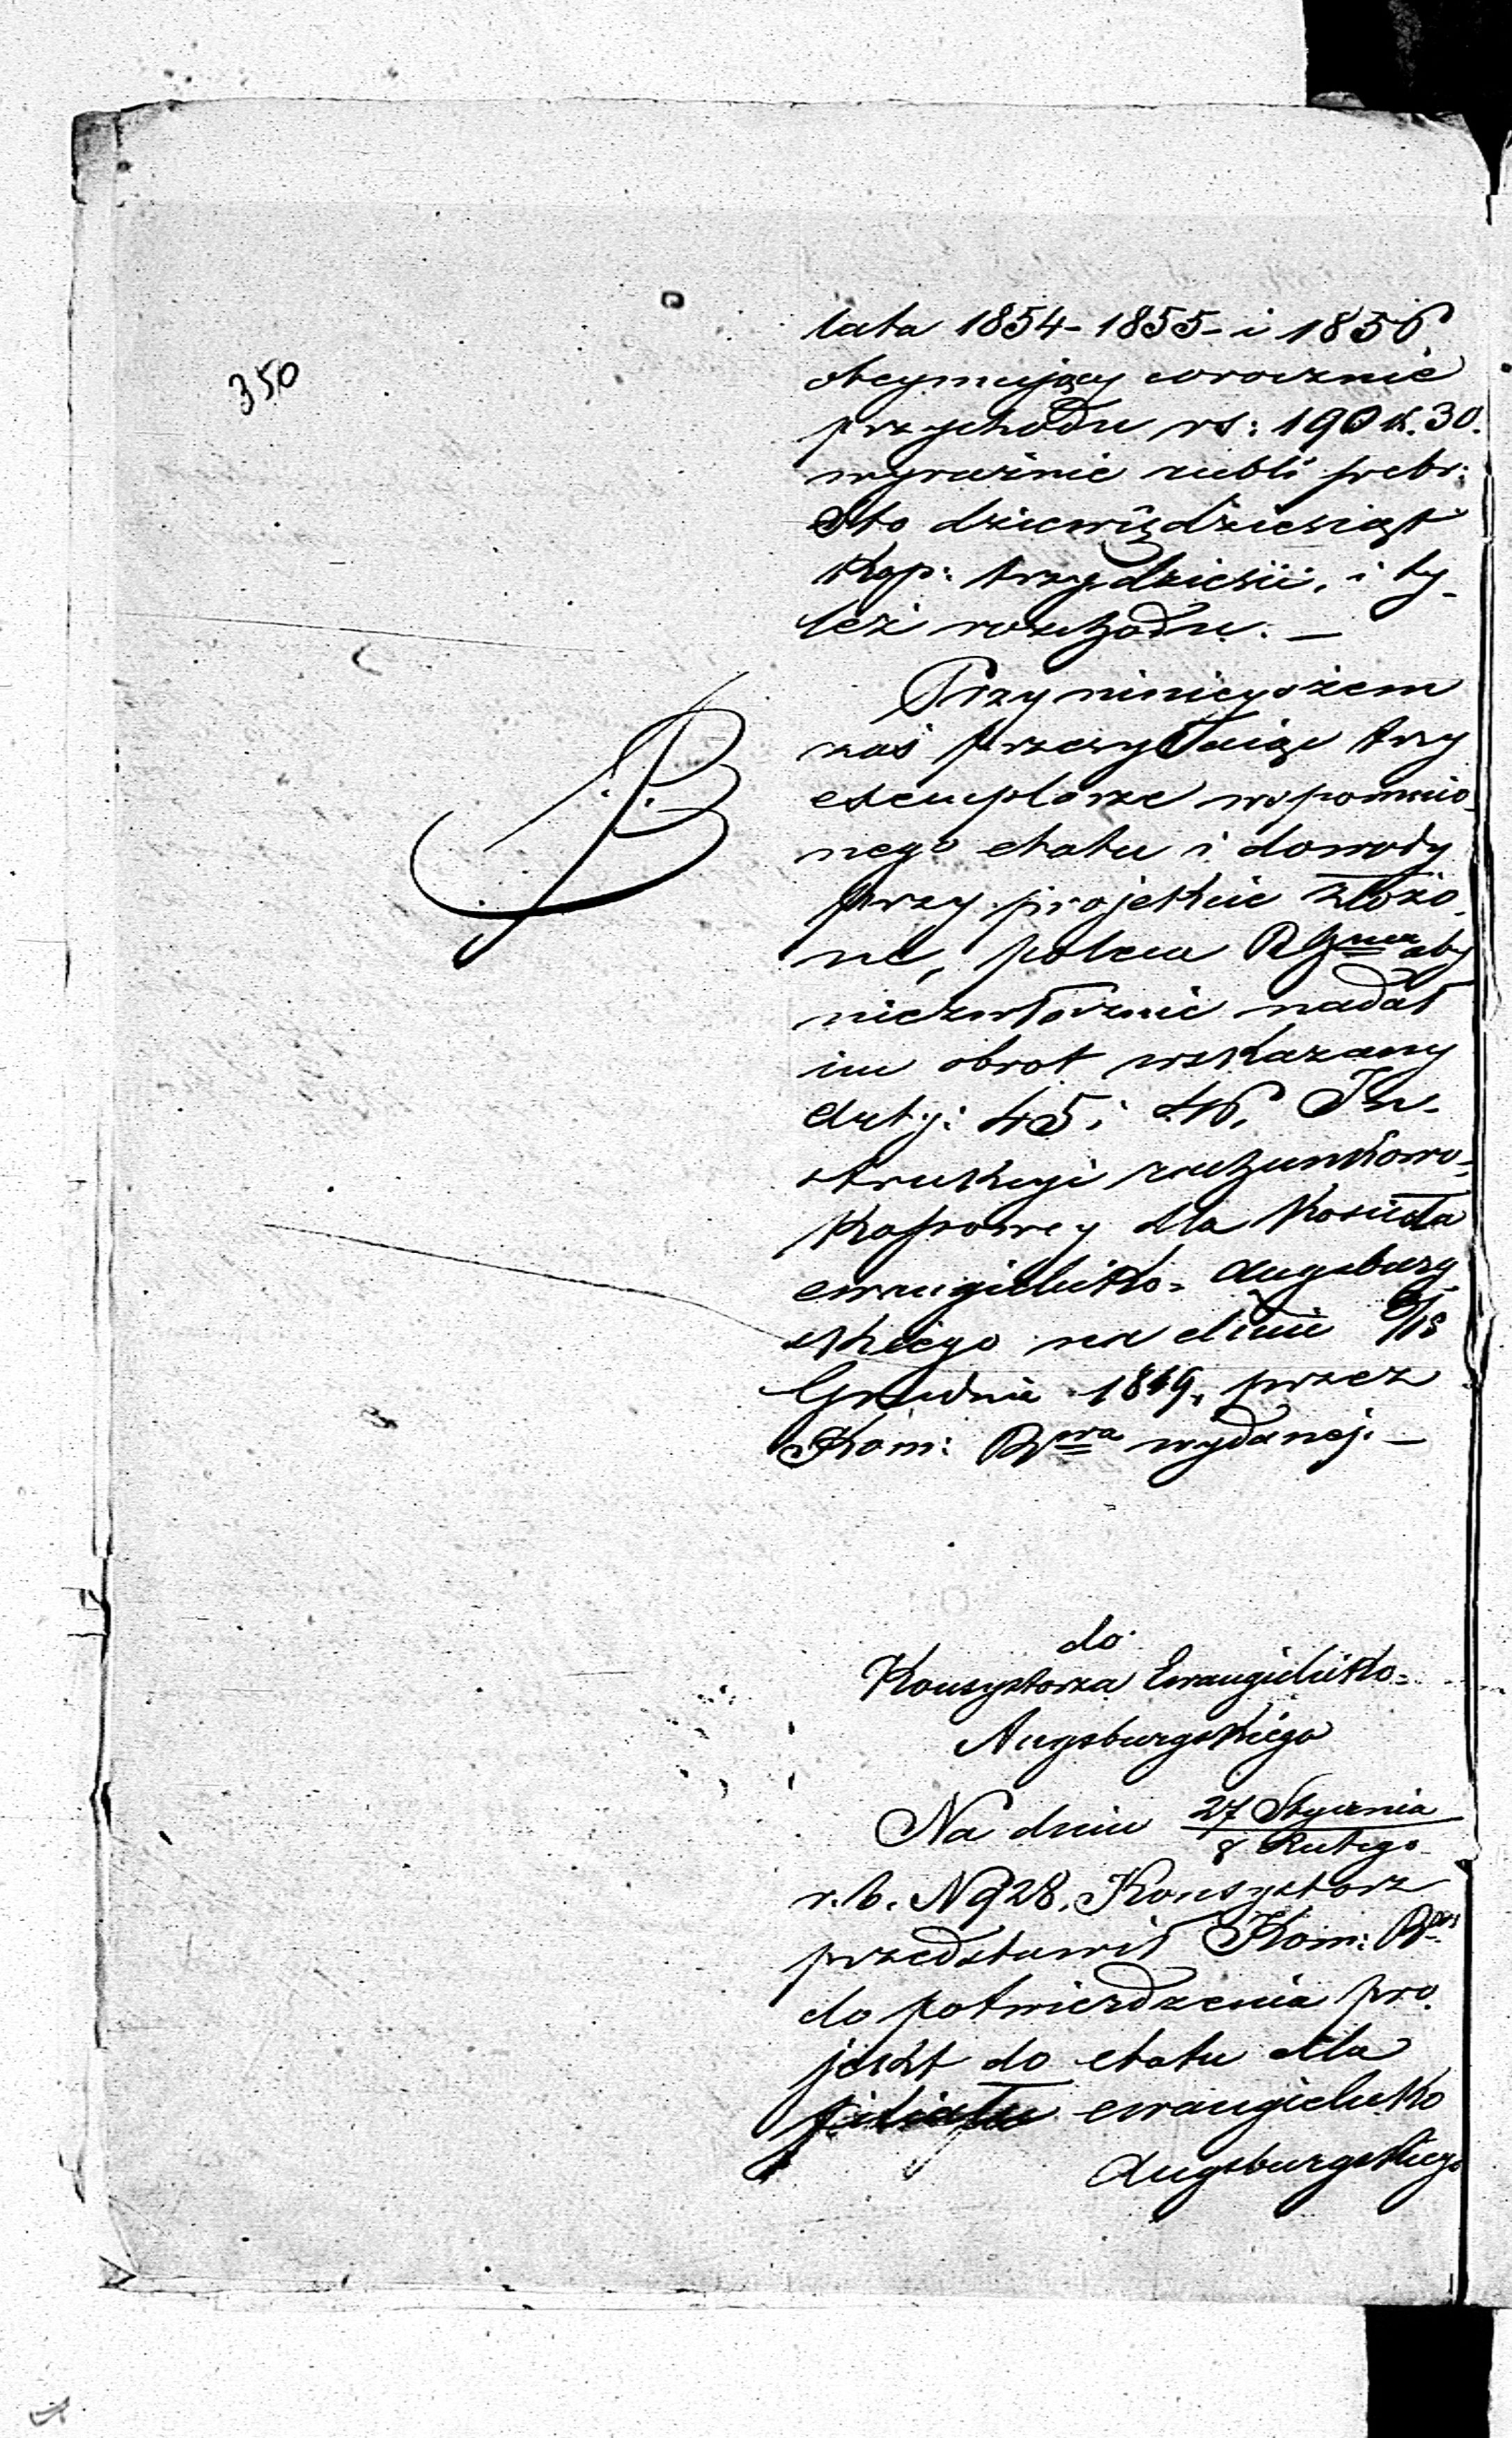 350
lata 1854-1855- i 1856,
obeymujący corocznie
przychodu rs: 190 k. 30.
wyraźnie rubli srebr:
Sto dziewięćdziesiąt
Kop: trzydzieści, i ty-
leż rozchodu. —
Przy niniejszem
zaś przesyłaiąc trzy
exemplarze wspomnio-
nego etatu i dowody
przy projekcie złożo-
ne, poleca aby
niezwłocznie nadał
im obrot wskazany
Arty: 45 i 46, In-
strukcyi rachunkowo-
Kassowey dla Kościoła
ewangielicko- Augsburg-
skiego na dniu 6/18
Grudnia 1849, przez
Kom: Rwą wydanej. —
do
Konsystorza Ewangielicko-
Augsburgskiego
Na dniu 27 Stycznia
8 Lutego
r. b. N 928, Konsystorz
przedstawił Kom: Rwej
do potwierdzenia pro-
jekt do etatu dla
filiału ewangielicko
Augsburgskiego